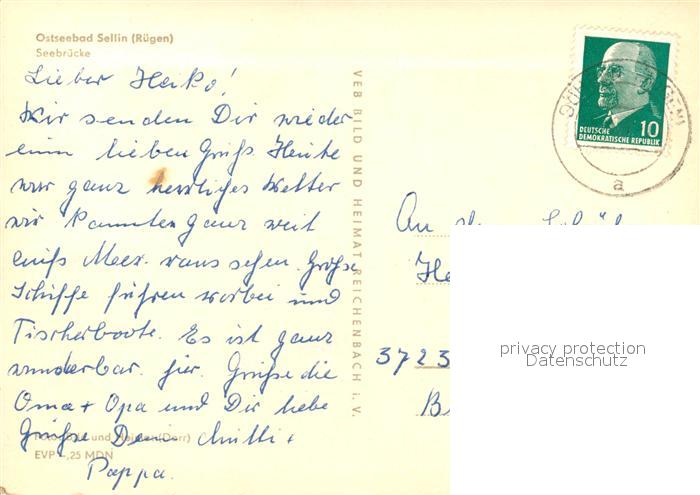 Ostseebad Sellin (Rügen)
Seebrücke
Lieber Heiko!
Wir senden Dir wieder
einen lieben Gruß Heute
war ganz herrliches Wetter
wir konnten ganz weit
aufs Meer raus sehen. Große
Schiffe fuhren vorbei und
Fischerboote. Es ist ganz
wunderbar hier. Grüße die
Oma + Opa und Dir liebe
Grüße Deine Mutti +
Pappa.
EVP -,25 MDN
VEB BILD UND HEIMAT REICHENBACH i. V.
10
DEUTSCHE
DEMOKRATISCHE REPUBLIK
a
An
He
3723
B
privacy protection
Datenschutz